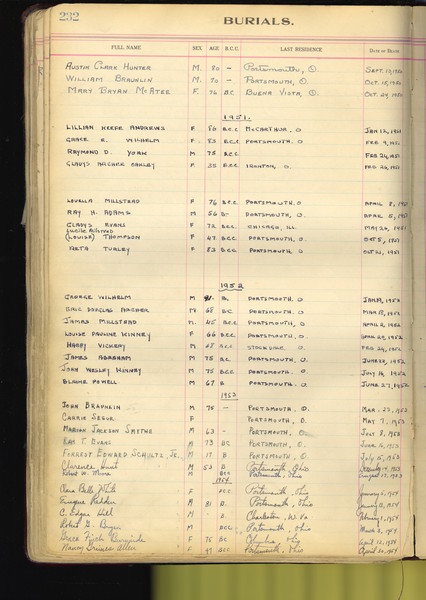 232
BURIALS.
FULL NAME SEX. AGE B.C.C. LAST RESIDENCE DATE OF DEATH
AUSTIN CLARK HUNTER M. 80 – PORTSMOUTH, O. SEPT. 1950
WILLIAM BRAUNLIN M. 70 – PORTSMOUTH, O. OCT. 1950
MARY BRYAN MCATEE F. 76 B.C BUENA VISTA, O. OCT. 29, 1950
1951.
LILLIAN KEEFE ANDREWS F 86 B.C.C MCARTHUR, O JAN 12, 1951
GRACE R. WILHELM F 83 B.C.C PORTSMOUTH, O FEB 9, 1951
RAYMOND D. YORK M 75 B.C.C. FEB 24, 1951
GLADYS ARCHER OAKLEY F 55 B.C.C IRONTON, O.
LOUELLA MILLSTEAD F 76 B.C.C PORTSMOUTH, O APRIL 8, 1951
RAY H. ADAMS M 56 B- PORTSMOUTH, O. APRIL 5, 1951
GLADYS EVANS F 72 B.C.C CHICAGO, ILL MAY 24, 1951
(LOUISA) THOMPSON F 47 B.C.C PORTSMOUTH, O. OCT 5, 1951
RETA TURLEY F 83 B.C.C PORTSMOUTH, O. OCT 21, 1951
1952
GEORGE WILHELM M B. PORTSMOUTH, O 1952
ERIC DOUGLAS ARCHER M 68 B.C PORTSMOUTH. O MAR 1952
JAMES MILLSTEAD M. 45 B.C.C PORTSMOUTH, O APRIL 1952
LOUISE PAULINE KINNEY F 66 B.C.C PORTSMOUTH, O. 1952
HARRY VICKERY M B.C.C O. FEB 24, 1952
JAMES ABRAHAM M 75 B.C. PORTSMOUTH, O. JUNE 22, 1952
JOHN WESLEY KINNEY M 75 B.C.C PORTSMOUTH, O. JULY 14, 1952
BLAINE POWELL M 67 B PORTSMOUTH, O JUNE 27, 1952
1953
JOHN BRAUNLIN M 75 – PORTSMOUTH, O. MAR. 23, 1953
CARRIE F PORTSMOUTH, O. MAY 7, 1953
MARION JACKSON SMYTHE M 63 – PORTSMOUTH, O. JULY 1953
RAY T. EVANS M 73 BC PORTSMOUTH, O. 1953
FORREST EDWARD SCHULTZ, JR. M 17 B PORTSMOUTH, O. JULY 15, 1953
Clarence Hunt M 53 B Portsmouth, Ohio 1953
Robert W. M BCC Portsmouth, Ohio August 1953
1954
Clara Belle White F BCC Portsmouth, Ohio January 1954
M 81 B. Portsmouth, Ohio January 1954
C. Edgar M B Charleston, W. Va February 1954
Robert G. M BCC. Portsmouth, Ohio March 1954
Grace F 75 BC Columbus, Ohio April 12, 1954
Grimes Allen F BCC Portsmouth, Ohio April 30, 1954